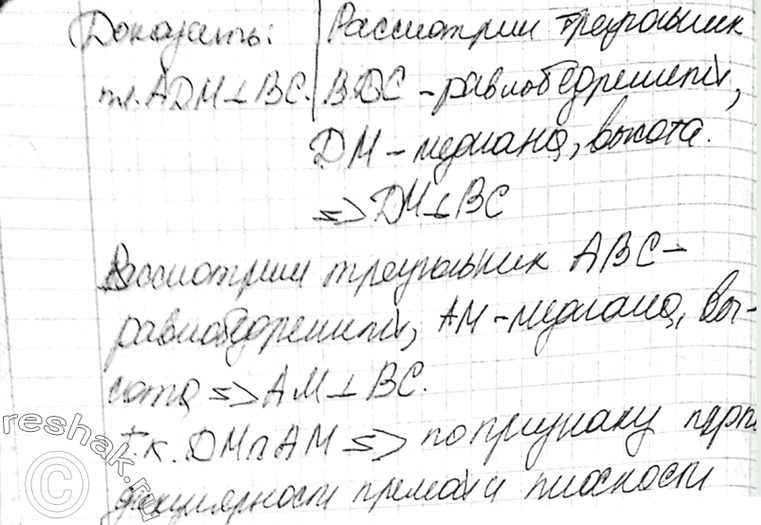 Доказать:
пл. ADM⊥BC.
Рассмотрим треугольник
BDC - равнобедренный,
DM - медиана, высота.
=> DM⊥BC
Рассмотрим треугольник ABC -
равнобедренный, AM - медиана, вы-
сота => AM⊥BC.
т.к. DM∩AM => по признаку перпен
дикулярности прямой и плоскости
©reshak.ru